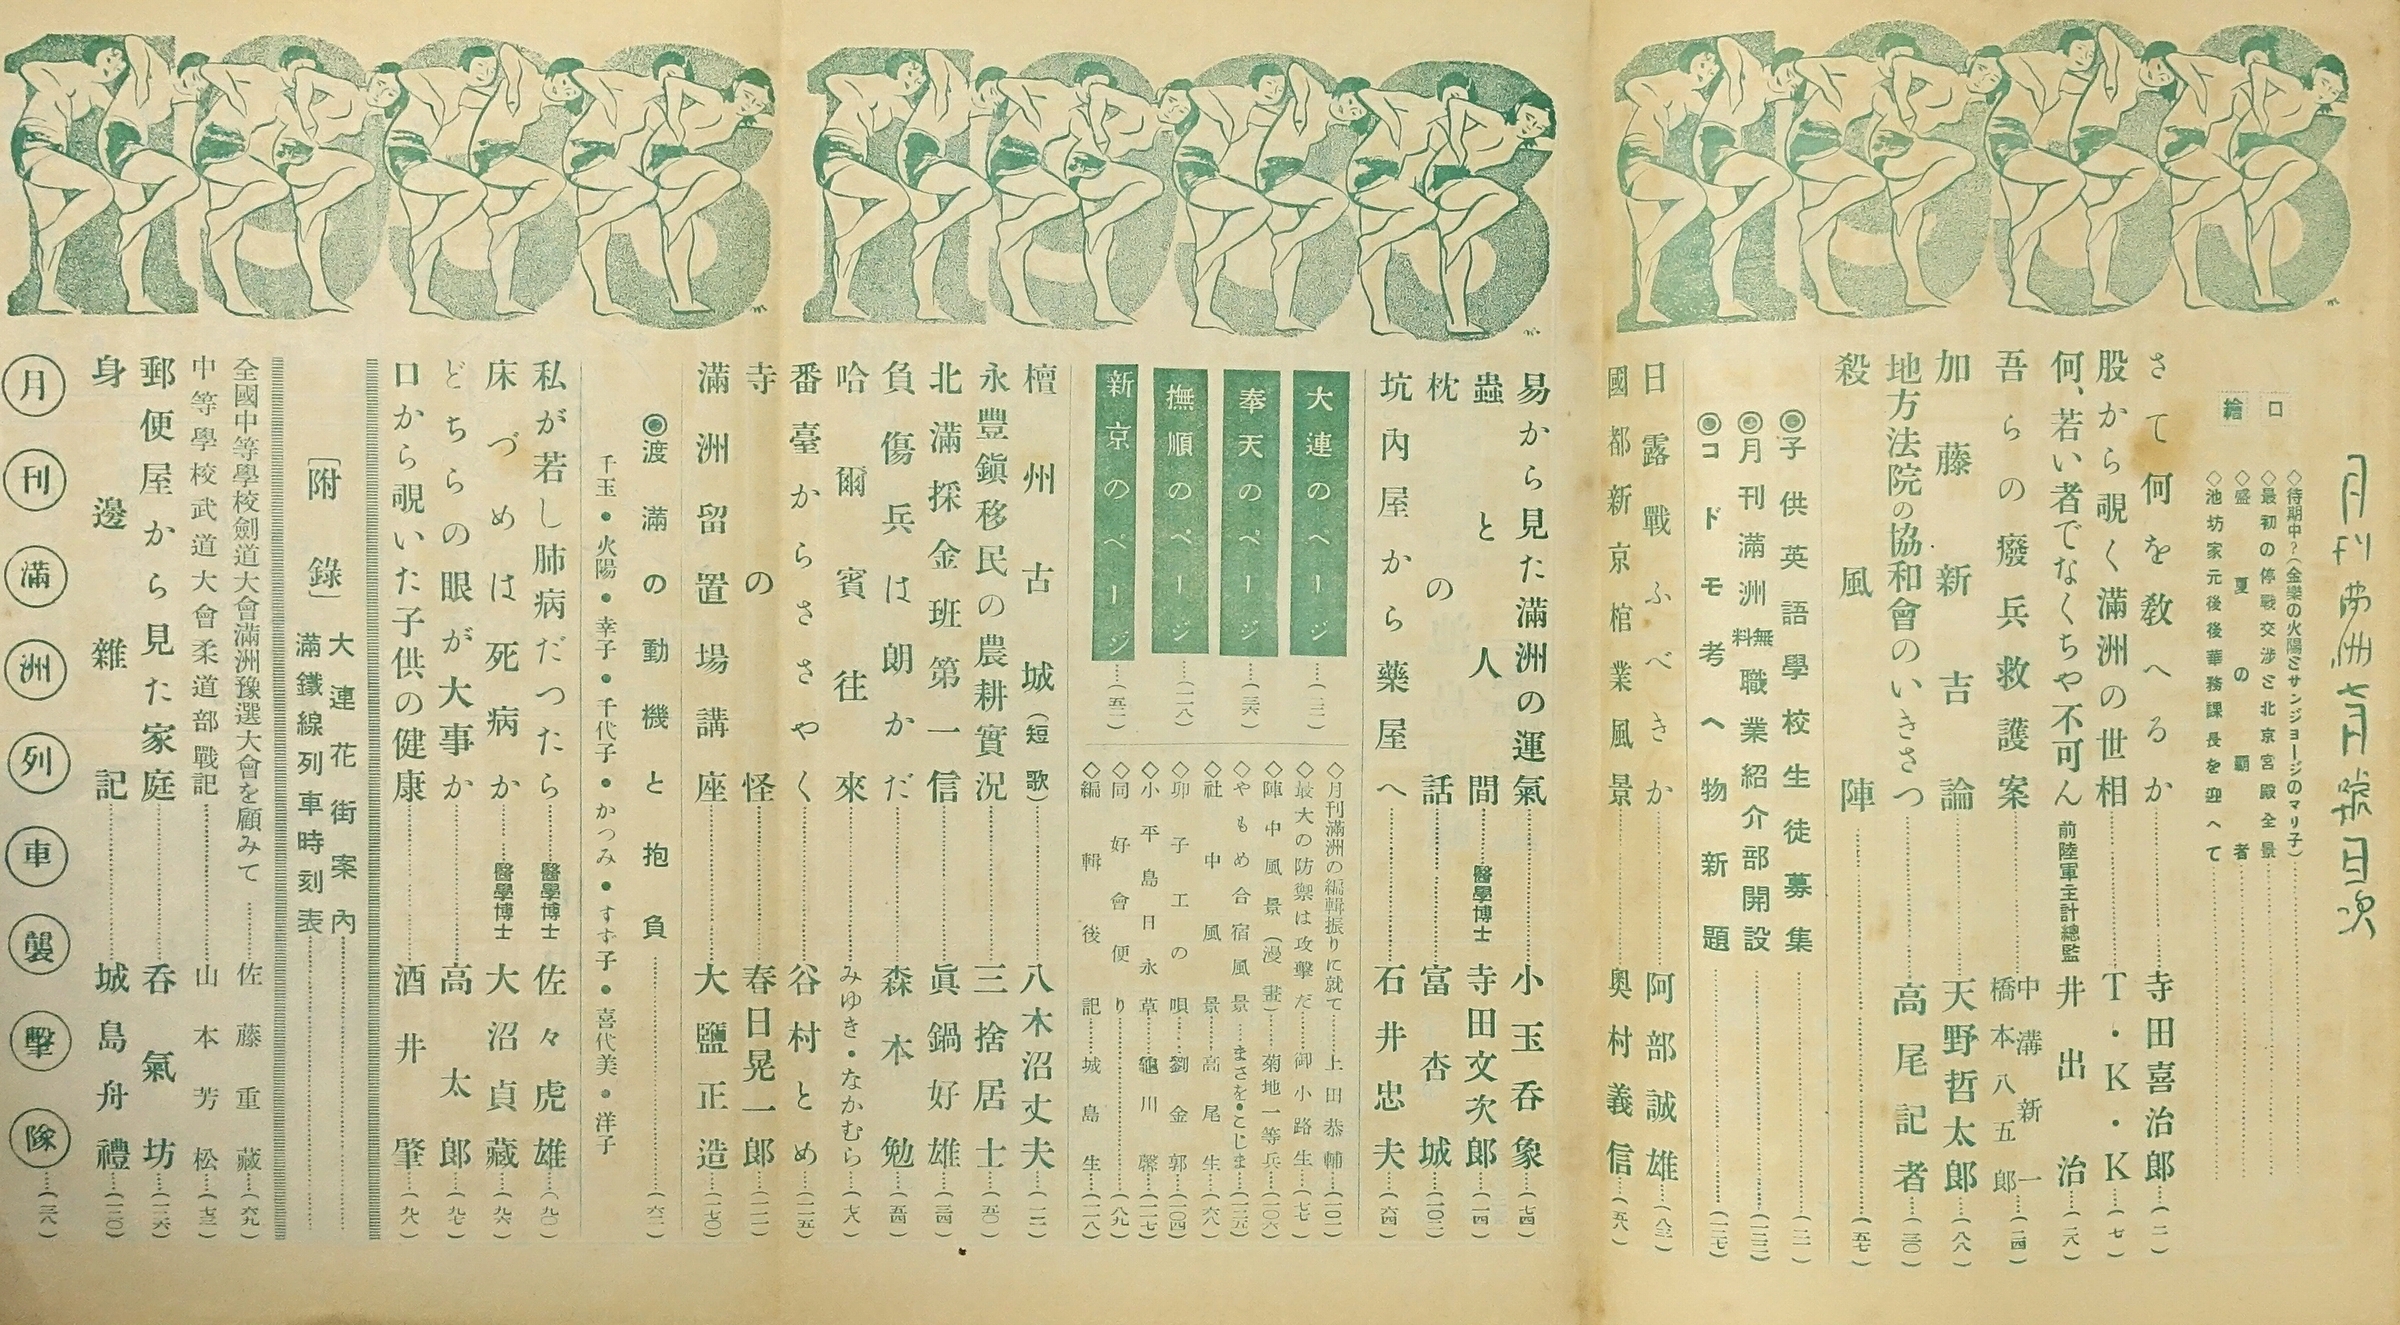 月刊滿洲七月號目次
口繪
◇待期中?(金樂の火陽とサンジョージのマリ子)
◇最初の停戰交涉と北京宮殿全景
◇盛夏の覇者
◇池坊家元後後華務課長を迎へて
さて何を敎へるか 寺田喜治郎 (二)
股から覗く滿洲の世相 T・K・K (七)
何、若い者でなくちや不可ん 前陸軍主計總監 井出治 (二八)
吾らの癈兵救護案 中溝新一 橋本八五郎 (二四)
加藤新吉論 天野哲太郎 (八八)
地方法院の協和會のいきさつ 高尾記者 (三〇)
殺風陣 (五七)
◉子供英語學校生徒募集
◉月刊滿洲無料職業紹介部開設
◉コドモ考へ物新題
日露戰ふべきか 阿部誠雄
國都新京棺業風景 奧村義信 (五八)
易から見た滿洲の運氣 小玉呑象 (七四)
蟲と人間 醫學博士 寺田文次郎 (一四)
枕の話 富杏城 (一〇二)
坑內屋から藥屋へ 石井忠夫 (六四)
大連のページ
奉天のページ (三六)
撫順のページ
新京のページ (五二)
◇月刊滿洲の編輯振りに就て 上田恭輔 (一〇一)
◇最大の防禦は攻擊だ 御小路生 (七七)
◇陣中風景(漫畫) 菊地一等兵 (一〇六)
◇やもめ合宿風景 まさを・こじま (一二五)
◇社中風景 高尾生 (六八)
◇卯子工の唄 劉金郭 (一〇四)
◇小平島日永草 龜川馨 (一一七)
◇同好會便り (八九)
◇編輯後記 城島生 (一一八)
檀州古城(短歌) 八木沼丈夫
永豐鎭移民の農耕實況 三捨居士 (五〇)
北滿採金班第一信 眞鍋好雄 (三四)
負傷兵は朗かだ 森本勉 (五四)
哈爾賓往來 みゆき・なかむら (七八)
番臺からささやく 谷村とめ (一一五)
寺の怪 春日晃一郎
滿洲留置場講座 大鹽正造 (一七〇)
◉渡滿の動機と抱負 (六二)
千玉・火陽・幸子・千代子・かつみ・すゞ子・喜代美・洋子
私が若し肺病だつたら 醫學博士 佐々虎雄 (九〇)
床づめは死病か 醫學博士 大沼貞藏 (九六)
どちらの眼が大事か 高太郎 (九七)
口から覗いた子供の健康 酒井肇 (九八)
〔附錄〕 大連花街案內
滿鐵線列車時刻表
全國中等學校劍道大會滿洲豫選大會を顧みて 佐藤重藏 (六九)
中等學校武道大會柔道部戰記 山本芳松 (七三)
郵便屋から見た家庭 呑氣坊 (一一六)
身邊雜記 城島舟禮 (一二〇)
月刊滿洲列車襲擊隊 (三八)
1933
1933
1933